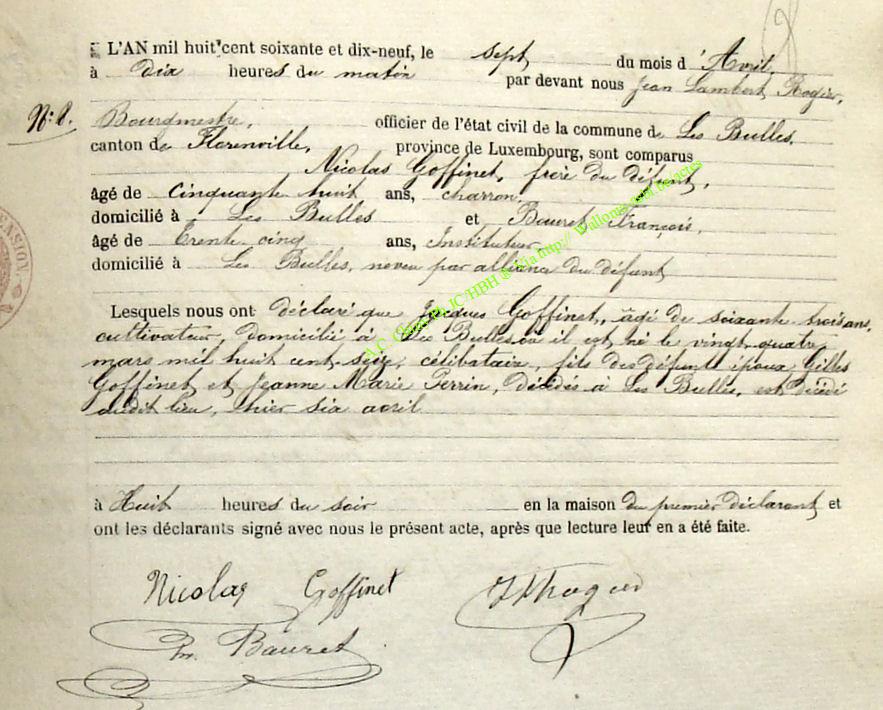 L'AN mil huit cent soixante et dix-neuf, le sept du mois d'Avril,
à Dix heures du matin par devant nous Jean Lambert Rogier,
N° 8.
Bourgmestre, officier de l'état civil de la commune de Les Bulles,
canton de Florenville, province de Luxembourg, sont comparus
Nicolas Goffinet, frère du défunt,
âgé de cinquante huit ans, charron,
domicilié à Les Bulles et Bauret François,
âgé de trente cinq ans, Instituteur
domicilié à Les Bulles, neveu par alliance du défunt
Lesquels nous ont déclaré que Jacques Goffinet, âgé de soixante trois ans,
cultivateur, domicilié à Les Bulles où il est né le vingt quatre
mars mil huit cent seize, célibataire, fils des défunts époux Gilles
Goffinet et Jeanne Marie Perrin, décédés à Les Bulles, est décédé
audit lieu, hier six avril
à Huit heures du soir en la maison du premier déclarant et
ont les déclarants signé avec nous le présent acte, après que lecture leur en a été faite.
Nicolas Goffinet
Bauret
ENSION